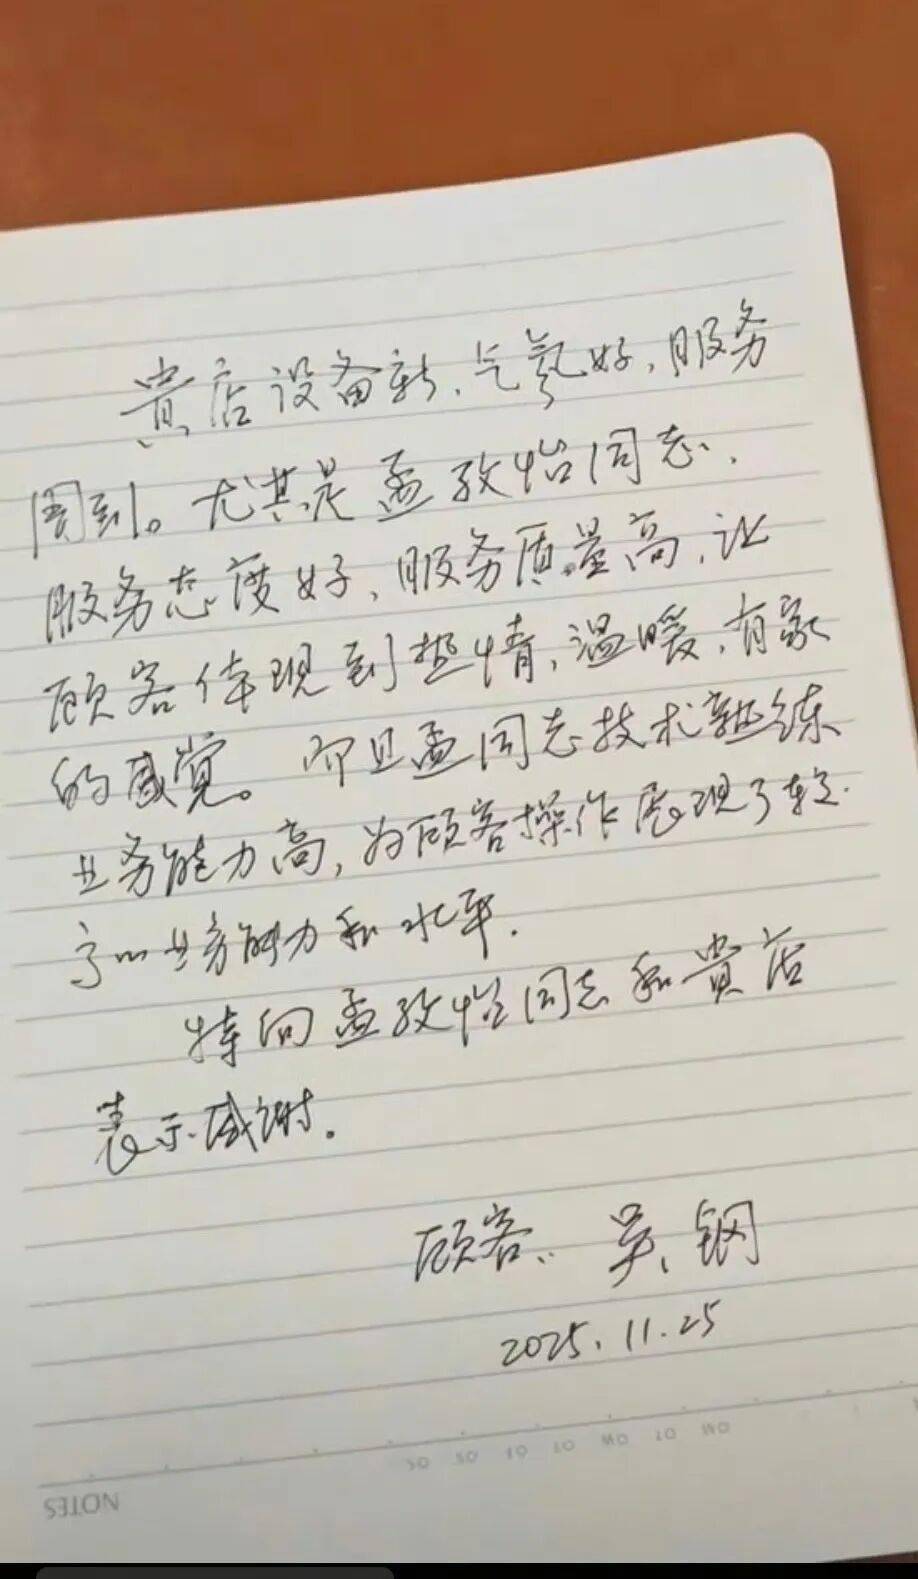 贵店设备新，气氛好，服务
周到。尤其是孟孜怡同志，
服务态度好，服务质量高，让
顾客体现到热情，温暖，有家
的感觉。而且孟同志技术熟练
业务能力高，为顾客操作展现了较
高的业务能力和水平．
特向孟孜怡同志和贵店
表示感谢．
顾客：吴钢
2025．11．25
NOTES